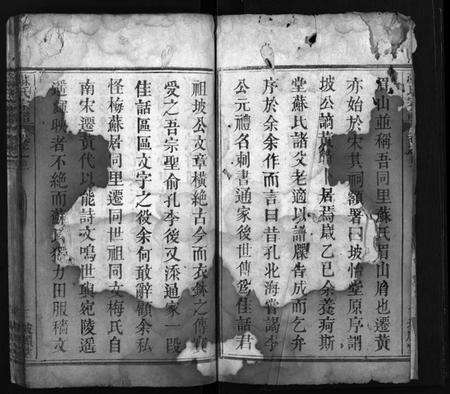 眉山並稱吾同里蘇氏眉山裔也遷黃
亦始於宋其祠額署曰坡怡堂原序謂
坡公謫黃 居焉歲乙巳余養疴斯
堂蘇氏諸父老適以譜牒告成而乞弁
序於余余作而言曰昔孔北海嘗謁李
公元禮名刺書通家後世傳為佳話君
祖坡公文章橫絶古今而衣鉢之傳
愛之吾宗聖俞孔李後又添通家一段
佳話區區文字之役余何敢辭顧余私
怪梅蘇居同里遷同世祖同文梅氏自
南宋遷黃代以能詩文鳴世與宛陵遙
遙輝映者不絶而蘇氏 力田服穡文